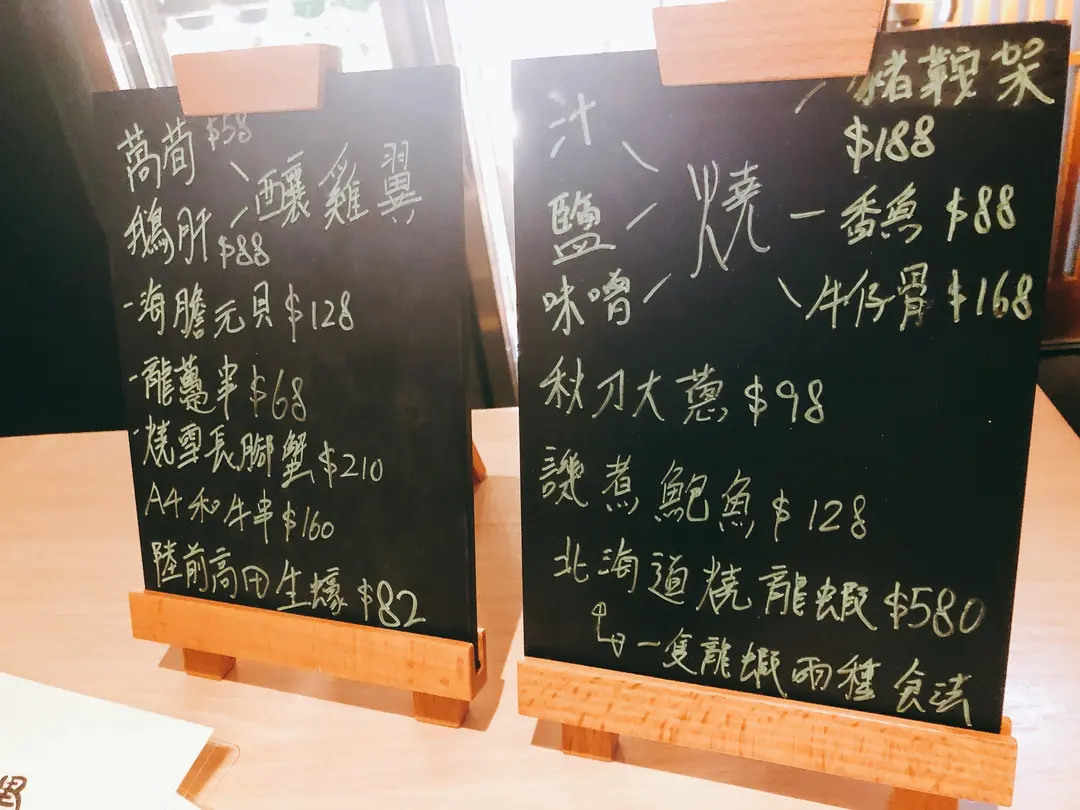 萵荀 $58
釀雞翼
鵝肝 $88
-海膽元貝 $128
-龍躉串 $68
-燒雪長腳蟹 $210
A4和牛串 $160
陸前高田生蠔 $82
汁
鹽
味噌
燒
豬鞍架
$188
香魚 $88
牛仔骨 $168
秋刀大蔥 $98
煮鮑魚 $128
北海道燒龍蝦 $580
一隻龍蝦兩種食法